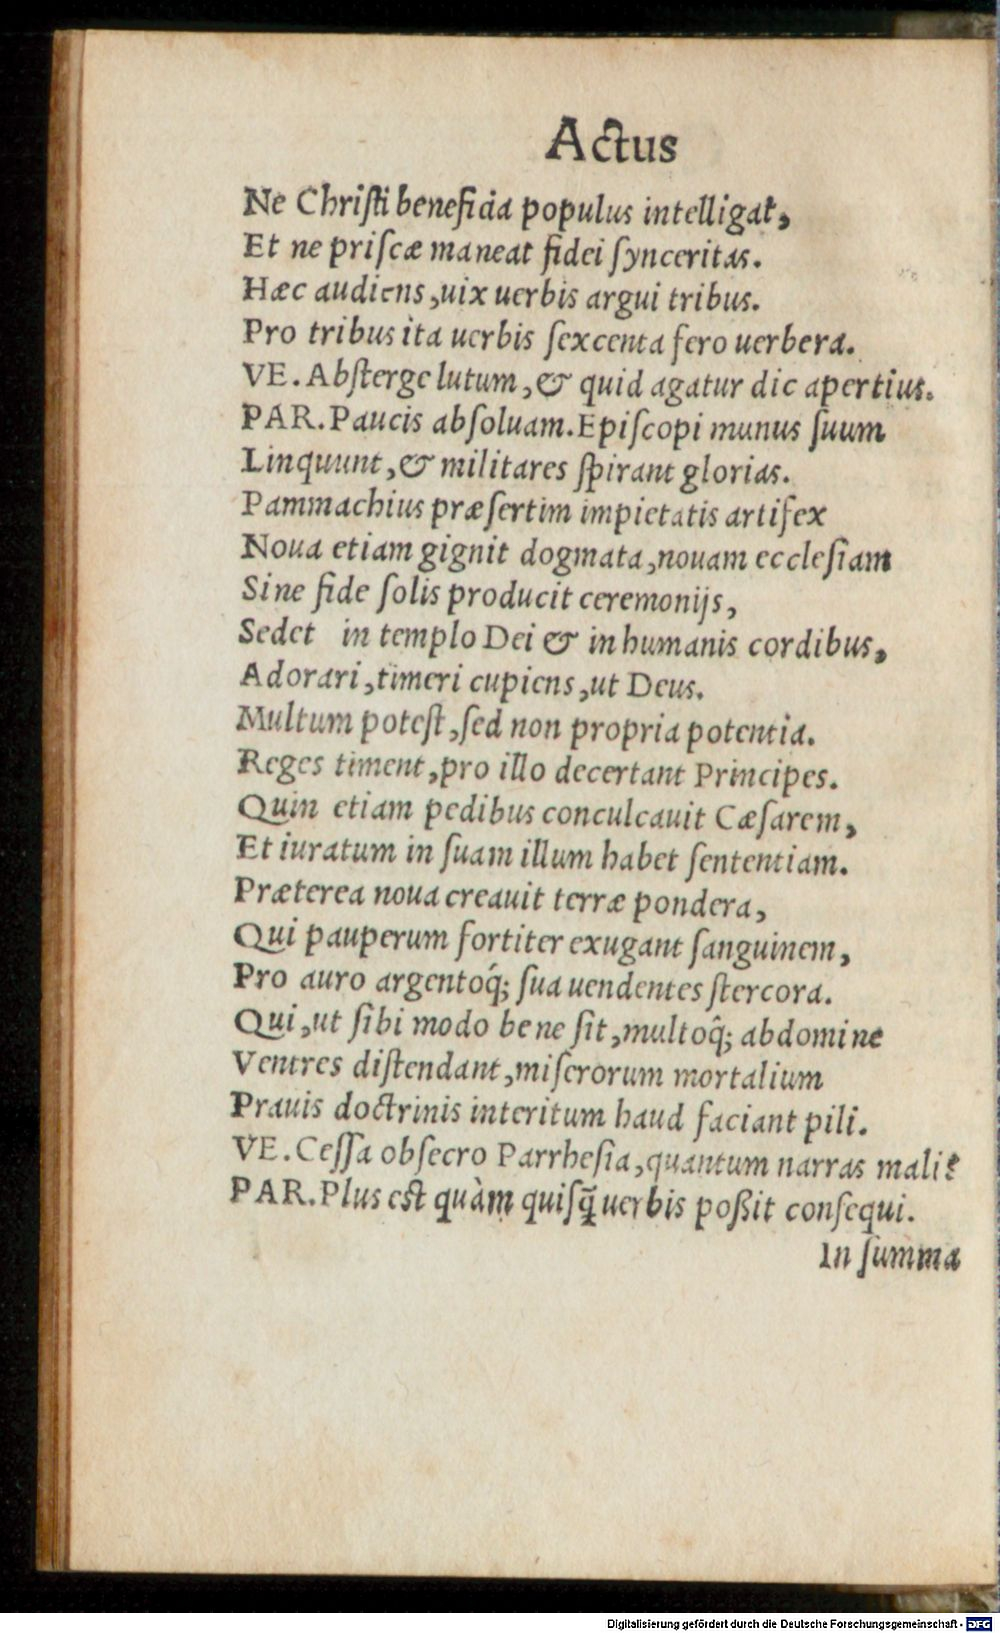 Actus
Ne Chriſti beneficia populus intelligat,
Et ne priſcæ maneat fidei ſynceritas.
Hæc audiens, uix uerbis argui tribus.
Pro tribus ita uerbis ſexcenta fero uerbera.
VE. Abſterge lutum, & quid agatur dic apertius.
PAR. Paucis abſoluam. Epiſcopi munus ſuum
Linquunt, & militares ſpirant glorias.
Pammachius præſertim impietatis artifex
Noua etiam gignit dogmata, nouam eccleſiam
Sine fide ſolis producit ceremonijs,
Sedet in templo Dei & in humanis cordibus,
Adorari, timeri cupiens, ut Deus.
Multum poteſt, ſed non propria potentia.
Reges timent, pro illo decertant Principes.
Quin etiam pedibus conculcauit Cæſarem,
Et iuratum in ſuam illum habet ſententiam.
Præterea noua creauit terræ pondera,
Qui pauperum fortiter exugant ſanguinem,
Pro auro argentoq́; ſua uendentes ſtercora.
Qui, ut ſibi modo bene ſit, multoq̂; abdomine
Ventres diſtendant, miſerorum mortalium
Prauis doctrinis interitum haud faciant pili.
VE. Ceſſa obſecro Parrheſia, quantum narras mali?
PAR. Plus eſt quàm quiſq̃ uerbis poßit conſequi.
In ſumma
Digitalisierung gefördert durch die Deutsche Forschungsgemeinschaft - DFG